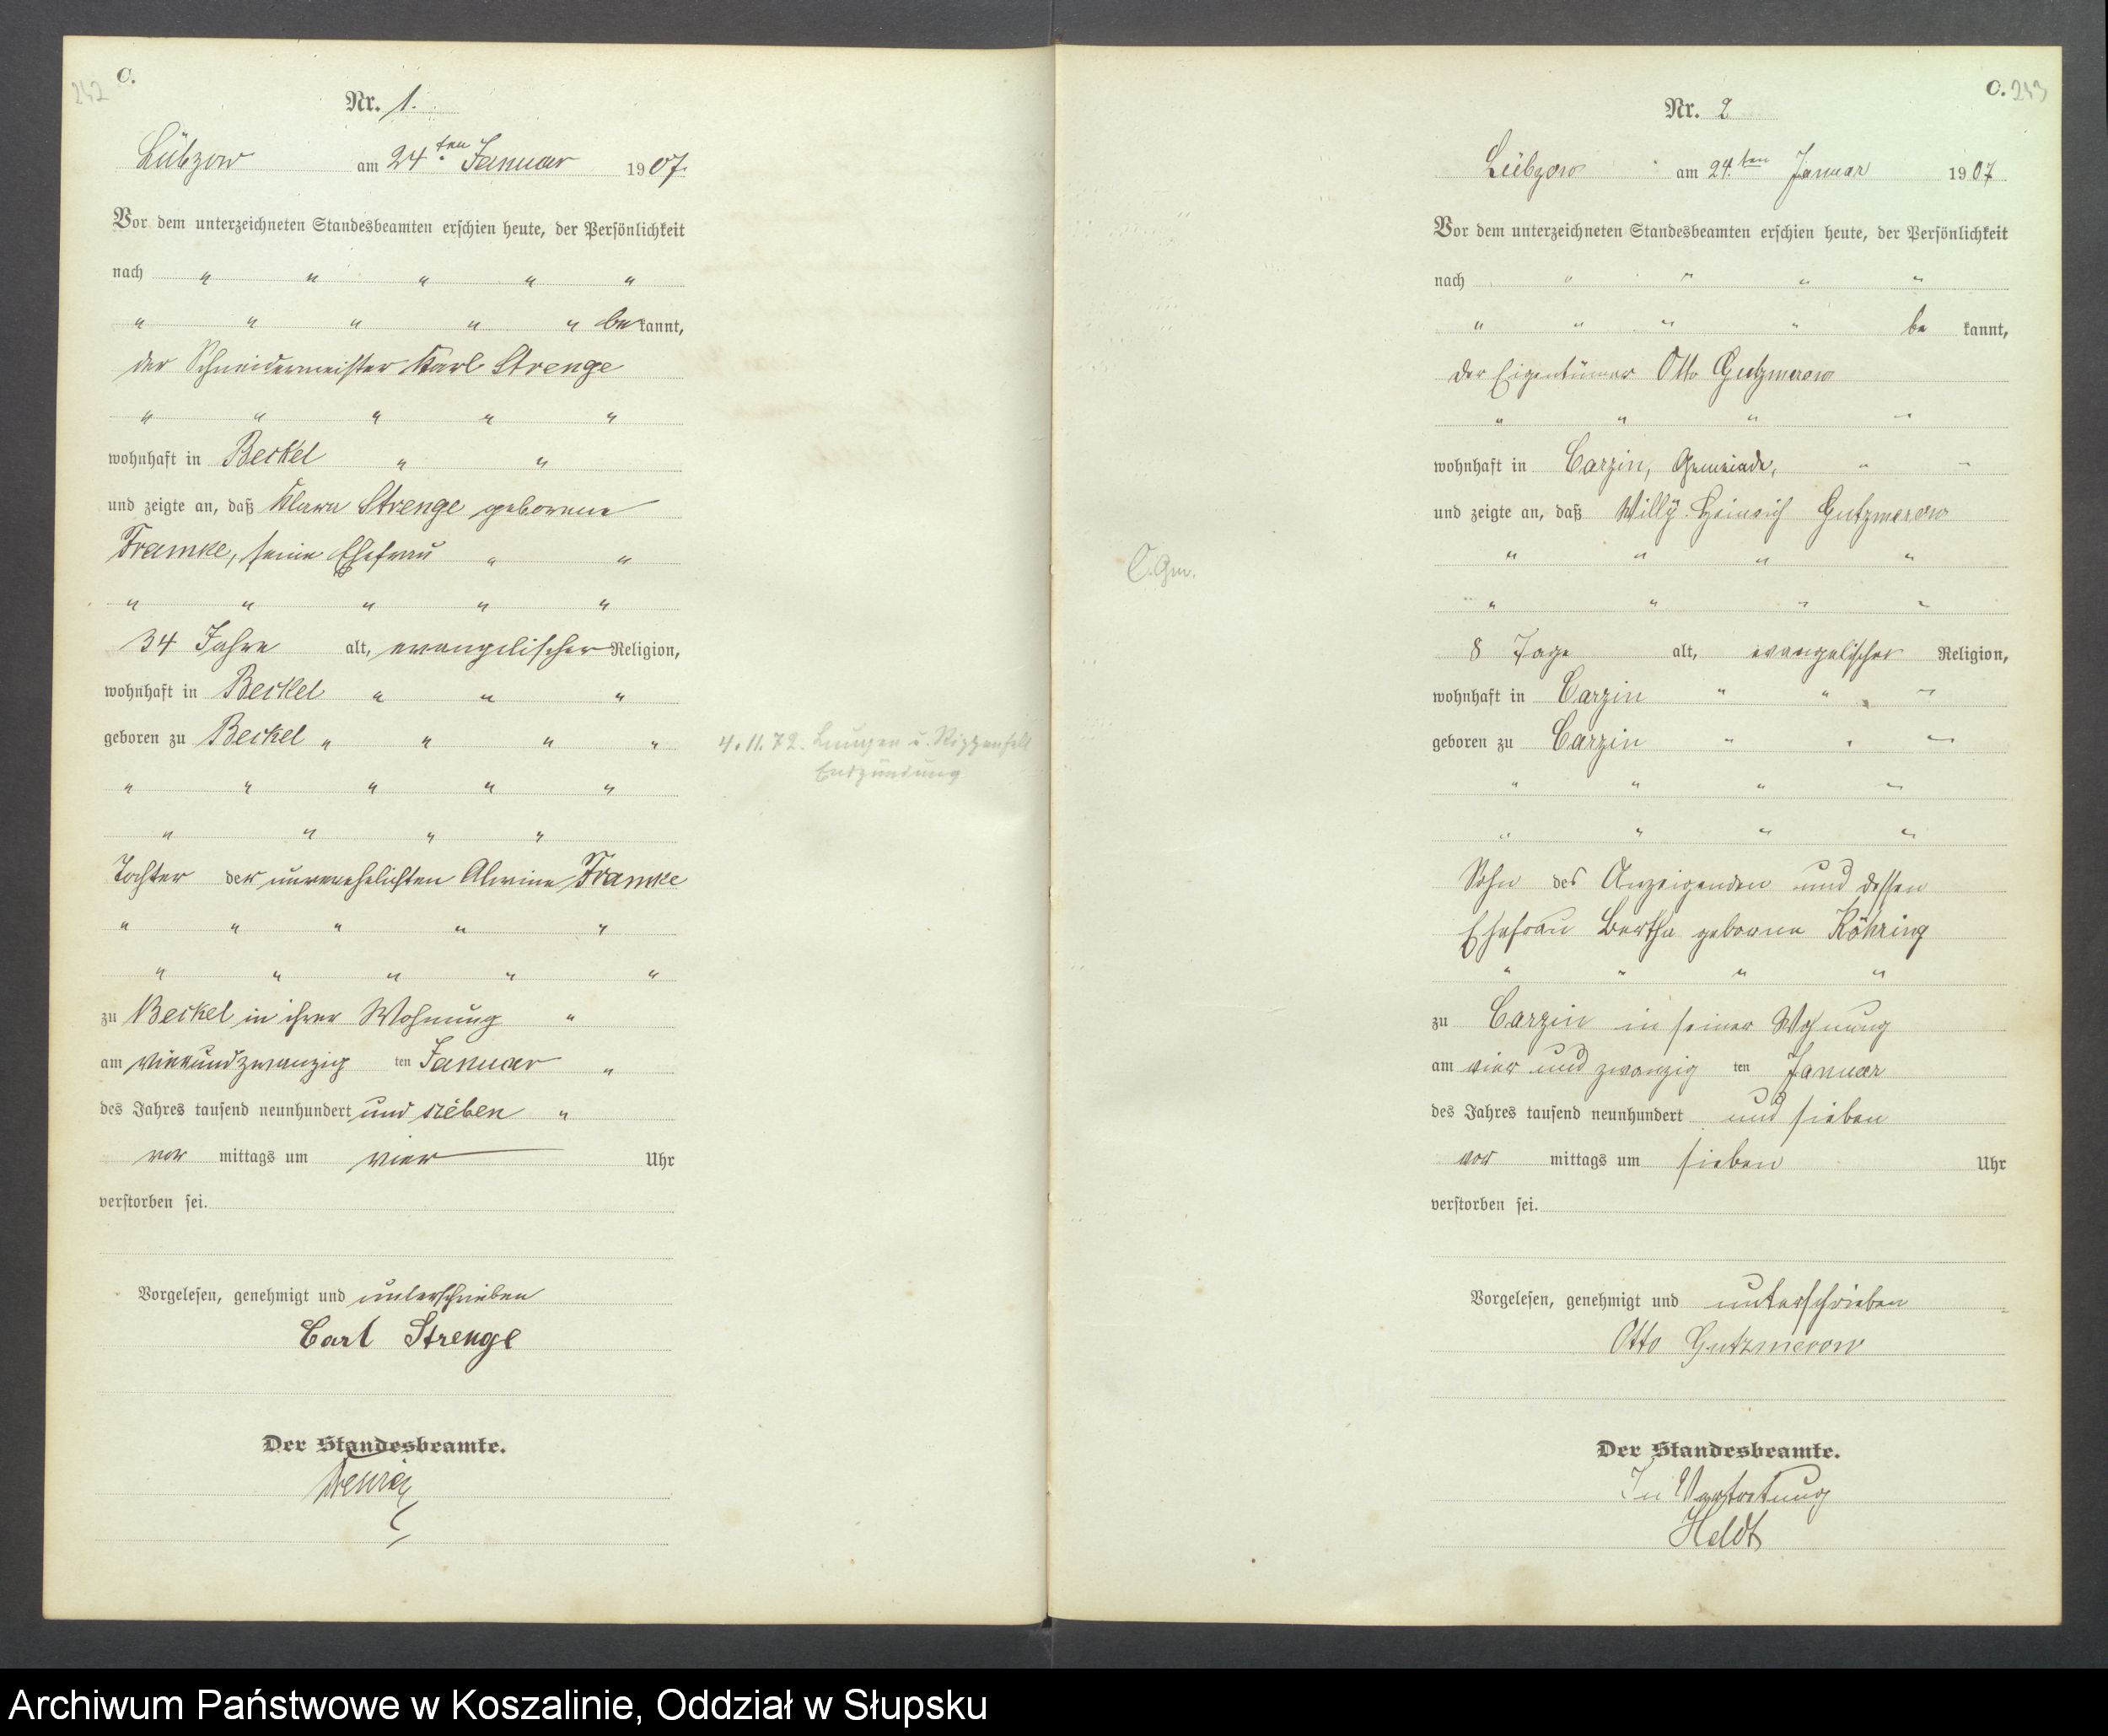 C.
242
Nr. 1.
Lübzow am 24ten Januar 1907.
Vor dem unterzeichneten Standesbeamten erschien heute, der Persönlichkeit
nach " " " " "
" " " " " be kannt,
der Schneidermeister Karl Strenge
" " " " "
wohnhaft in Beckel " "
und zeigte an, daß Klara Strenge geborene
Framke, seine Ehefrau " "
" " " " "
34 Jahre alt, evangelischer Religion,
wohnhaft in Beckel " " "
geboren zu Beckel " " " "
" " " " "
" " " "
Tochter der unverehelichten Alwine Framke
" " " " "
" " " " "
zu Beckel in ihrer Wohnung "
am vierundzwanzig ten Januar "
des Jahres tausend neunhundert und sieben "
vor mittags um vier Uhr
verstorben sei.
Vorgelesen, genehmigt und unterschrieben
Carl Strenge
Der Standesbeamte.
4.11.72. Lungen u. Rippenfell
Entzündung
C. 243
Nr. 2
Lübzow am 24.ten Januar 1907
Vor dem unterzeichneten Standesbeamten erschien heute, der Persönlichkeit
nach " " " "
" " " " be kannt,
der Eigentümer Otto Gutzmerow
" " " "
wohnhaft in Carzin, Gemeinde, " "
und zeigte an, daß Willy Heinrich Gutzmerow
" " " "
C. Gem.
" " " "
8 Tage alt, evangelischer Religion,
wohnhaft in Carzin " " "
geboren zu Carzin " " "
" " " "
" " " "
Sohn des Anzeigenden und dessen
Ehefrau Bertha geborne Röhring
" " " "
zu Carzin in seiner Wohnung
am vier und zwanzig ten Januar
des Jahres tausend neunhundert und sieben
vor mittags um sieben Uhr
verstorben sei.
Vorgelesen, genehmigt und unterschrieben
Otto Gutzmerow
Der Standesbeamte.
In Vertretung
Heldt
Archiwum Państwowe w Koszalinie, Oddział w Słupsku